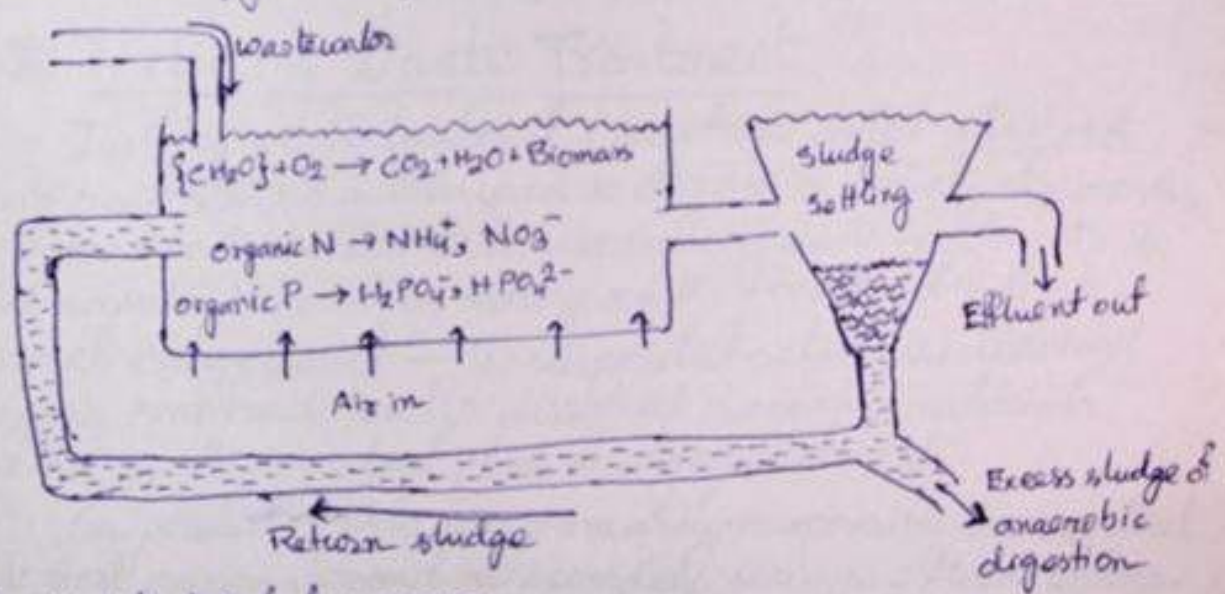 wastewater
{CH₂O} + O₂ → CO₂ + H₂O + Biomass
organic N → NH₄⁺, NO₃⁻
organic P → H₂PO₄⁻, HPO₄²⁻
Air in
sludge
settling
Effluent out
Return sludge
Excess sludge of
anaerobic
digestion